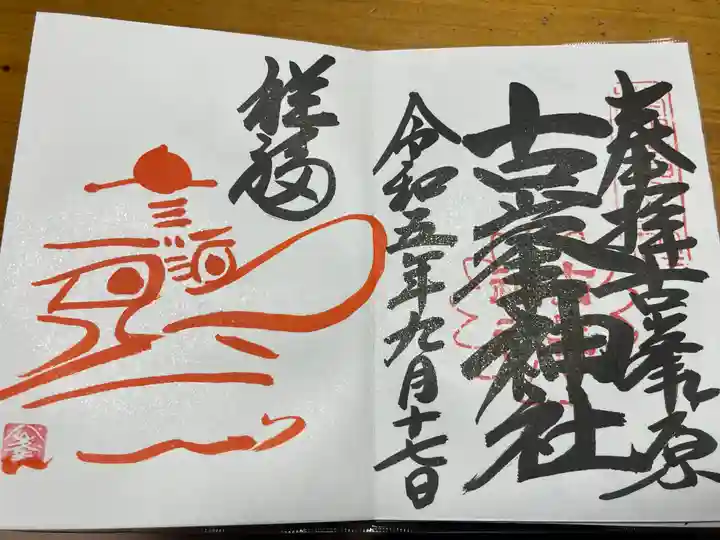 奉拝古峯ヶ原
古峯神社
令和五年九月十七日
祥福